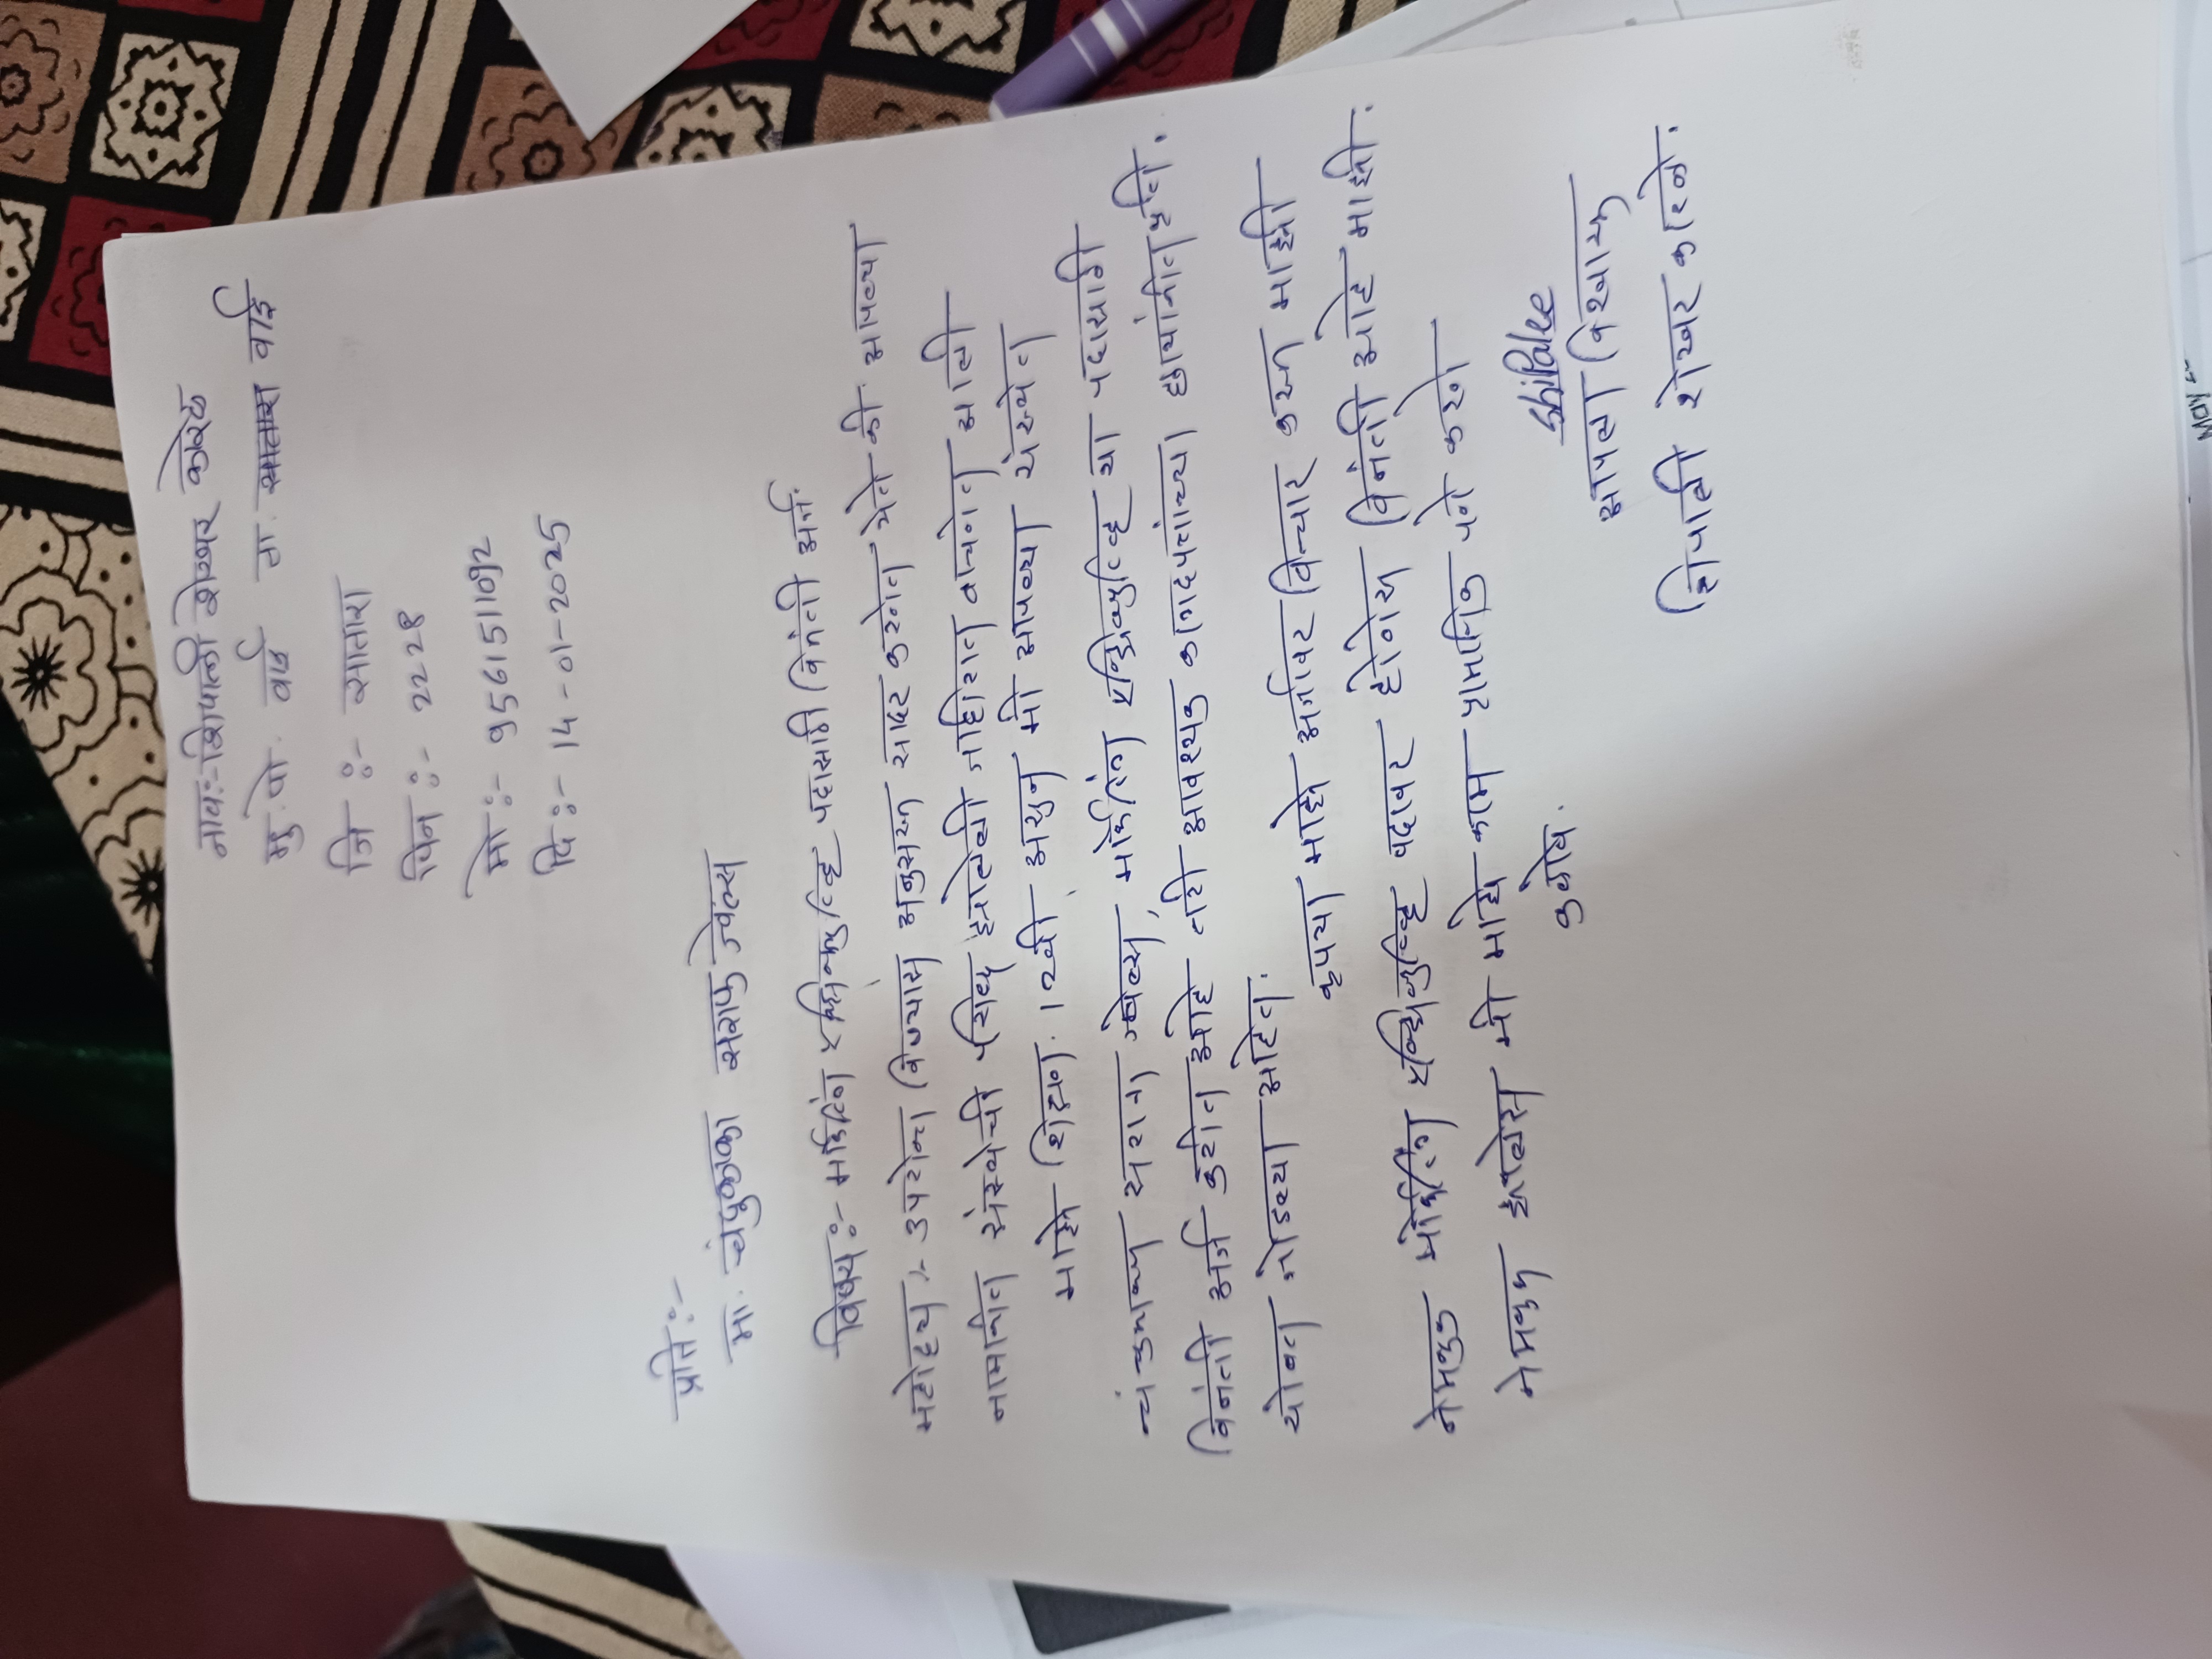 नाव:- शिपाली शेखर करळे
मु. पो. वाई ता. सातारा वाई
जि :- सातारा
पिन :- 2228
मो :- 9561511092
दि :- 14-01-2025
प्रति :-
मा. चंदुकाका सराफ ज्वेल्स
विषय :- मार्केटिंग एक्झिक्युटिव्ह पदासाठी विनंती अर्ज.
महोदय :- उपरोक्त विषयास अनुसरून सादर करतेत येते की आपल्या
नामांकित संस्थेची परिषद इालेली जाहिरात वाचनेत आली
माझे शिक्षण. 12वी असुन मी आपल्या संस्थेत
चंदुकाका सराफ ज्वेल्स, मार्केटिंग एक्झिक्युटिव्ह या पदासाठी
विनंती अर्ज करीत आहे तरी आवश्यक कागदपत्रांच्या छायांकीत प्रती.
सोबत जोडल्या आहेत.
कृपया माझे अर्जावर विचार करून माझी
नेमणुक मार्केटिंग एक्झिक्युटिव्ह पदावर होणेस विनंती आहे माझी.
नेमणुक झालेस मी माझे काम प्रामाणिक पणे करेन
कळावे.
Shipali
आपला विश्वासू
शिपाली शेखर करळे.
MOV